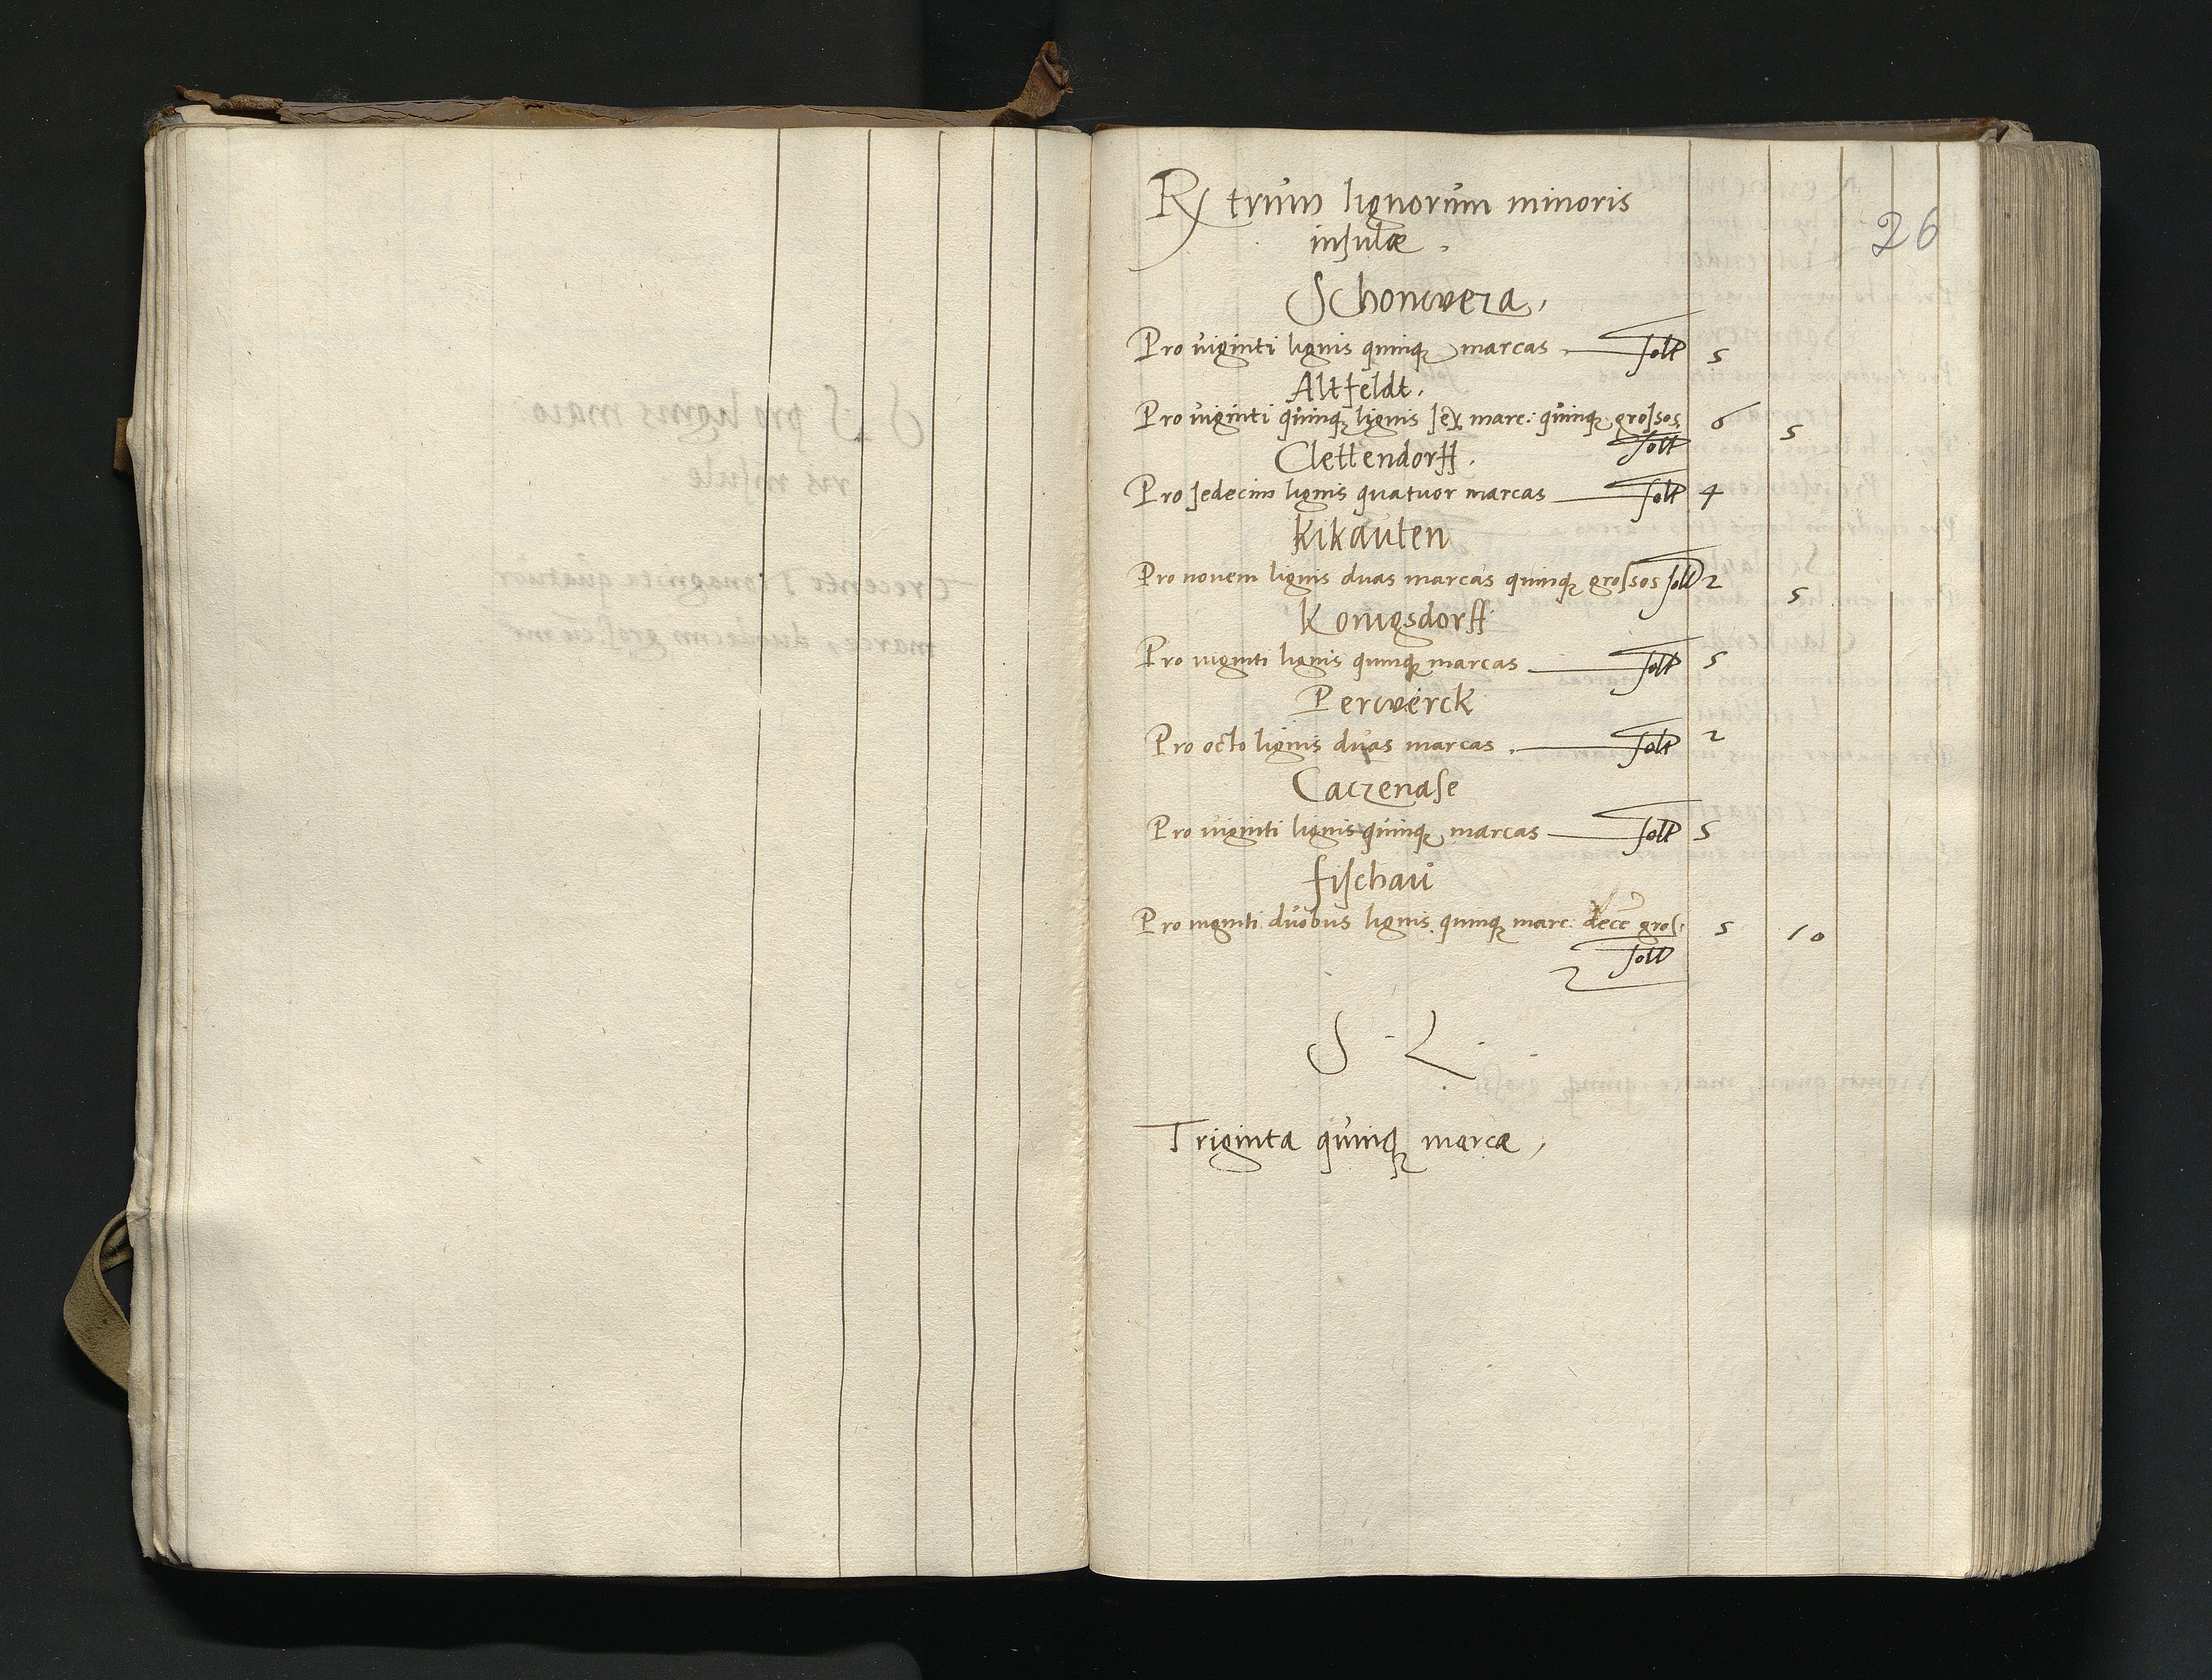 26
Rx̄ trum lignorum minoris
insulæ.
Schonwera,
Pro viginti lignis quinq; marcas. solt 5
Altfeldt.
Pro viginti quinq; lignis sex marc: quinq; grossos 6 5
solt
Clettendorff.
Pro sedecim lignis quatuor marcas solt 4
Kikauten
Pro novem lignis duas marcas quinq; grossos solt 2 5
Konigsdorff
Pro viginti lignis quinq; marcas solt 5
Percwerck
Pro octo lignis duas marcas. solt 2
Caczenase
Pro viginti lignis quinq; marcas solt 5
fischau
Pro viginti duobus lignis quinq; marc: decē gros: 5 10
solt
S L.
Triginta quinq; marcæ,